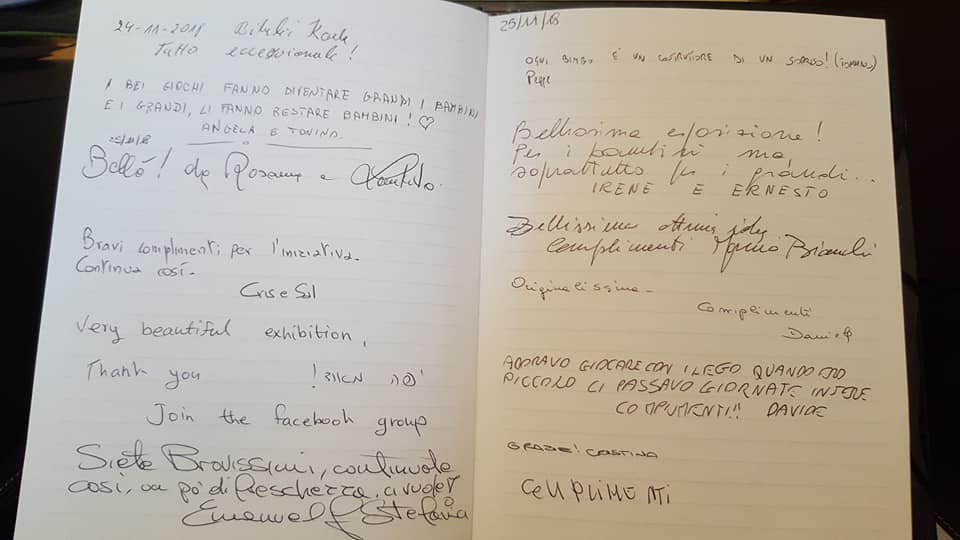 24-11-2018
Tutto eccezionale!
I BEI GIOCHI FANNO DIVENTARE GRANDI I BAMBINI
E I GRANDI, LI FANNO RESTARE BAMBINI! ♡
ANGELA E TONINO.
25/11/18
Bello! da Rosanna e
Bravi complimenti per l'iniziativa.
Continua così.
Cris e Sol
Very beautiful exhibition,
Thank you
Join the facebook group
Siete Bravissimi, continuate
così, un pò di freschezza ci vuole!
Emanuel e Stefania
25/11/18
OGNI BIMBO È UN COSTRUTTORE DI UN SOGNO!
Peppe
Bellissima esposizione!
Per i bambini ma,
soprattutto per i grandi...
IRENE E ERNESTO
Bellissima ottima idea
complimenti Bianchi
Originalissima -
Complimenti
ADORAVO GIOCARE CON I LEGO QUANDO ERO
PICCOLO CI PASSAVO GIORNATE INTERE
COMPLIMENTI!! DAVIDE
GRAZIE!
COMPLIMENTI